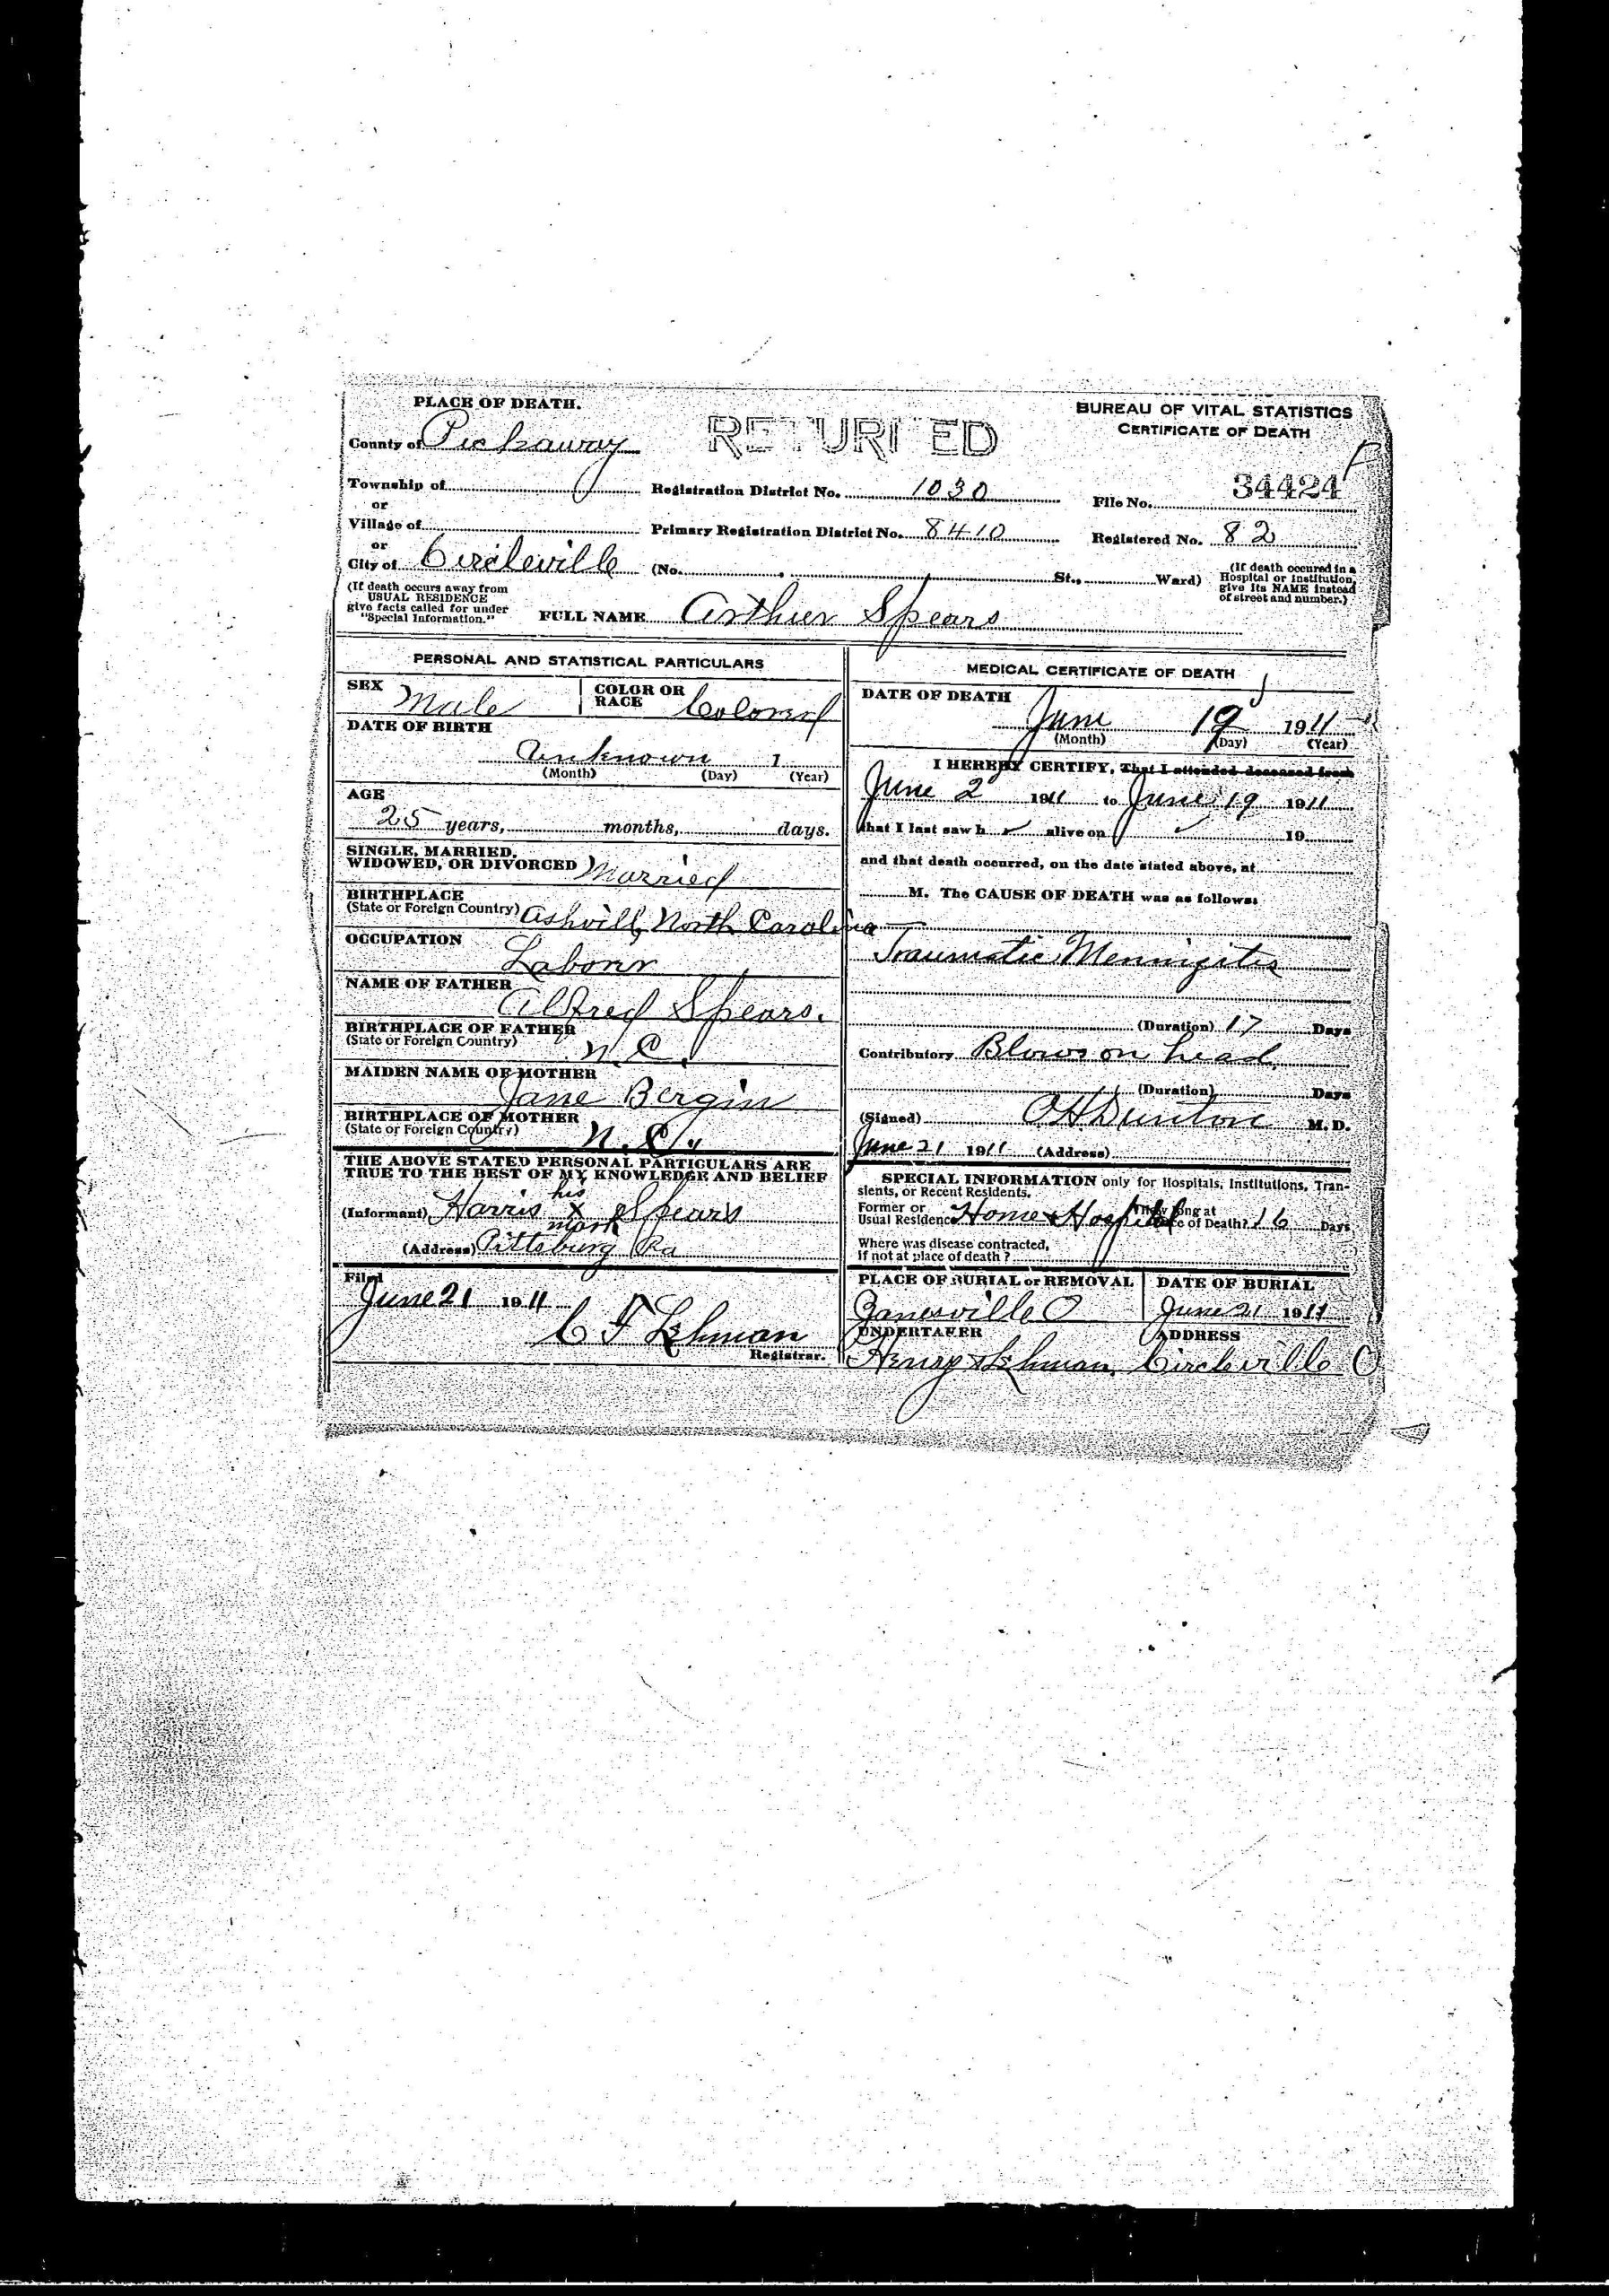 PLACE OF DEATH.
BUREAU OF VITAL STATISTICS
CERTIFICATE OF DEATH
RETURNED
County of Pickaway
Township of
Registration District No. 1030
File No. 34424
or
Village of
Primary Registration District No. 8410
Registered No. 82
or
City of Circleville (No. , St., Ward)
(If death occured in a
Hospital or Institution,
give its NAME instead
of street and number.)
(If death occurs away from
USUAL RESIDENCE
give facts called for under
"Special Information."
FULL NAME Arthur Spears
PERSONAL AND STATISTICAL PARTICULARS
SEX Male
COLOR OR
RACE Colored
DATE OF BIRTH
Unknown 1
(Month) (Day) (Year)
AGE
25 years, months, days.
SINGLE, MARRIED,
WIDOWED, OR DIVORCED Married
BIRTHPLACE
(State or Foreign Country) Ashvill North Carolina
OCCUPATION
Laborr
NAME OF FATHER
Alfred Spears.
BIRTHPLACE OF FATHER
(State or Foreign Country) N.C.
MAIDEN NAME OF MOTHER
Jane Bergin
BIRTHPLACE OF MOTHER
(State or Foreign Country) N.C.
THE ABOVE STATED PERSONAL PARTICULARS ARE
TRUE TO THE BEST OF MY KNOWLEDGE AND BELIEF
his
(Informant) Harris X Spears
mark
(Address) Pittsburg Pa
Filed
June 21 1911
C F Lehman
Registrar.
MEDICAL CERTIFICATE OF DEATH
DATE OF DEATH
June 19 1911
(Month) (Day) (Year)
I HEREBY CERTIFY, That I attended deceased from
June 2 1911 to June 19 1911
that I last saw h alive on 19
and that death occurred, on the date stated above, at
M. The CAUSE OF DEATH was as follows:
Traumatic Menningitis
(Duration) 17 Days
Contributory Blows on head
(Duration) Days
(Signed) M.D.
June 21 1911 (Address)
SPECIAL INFORMATION only for Hospitals, Institutions, Tran-
sients, or Recent Residents.
Former or
Usual Residence Home & Hospital
How long at
Place of Death? 16 Days
Where was disease contracted,
If not at place of death?
PLACE OF BURIAL or REMOVAL
Zanesville O
DATE OF BURIAL
June 21 1911
UNDERTAKER
Henry Lehman
ADDRESS
Circleville O